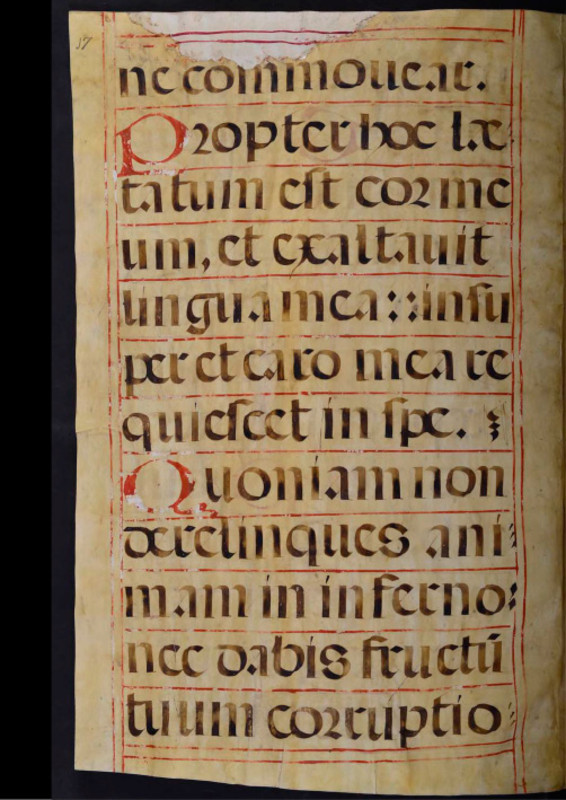 57
ne commouear.
Propter hoc læ
tatum est cor me
um, et exaltauit
lingua mea : : insu
per et caro mea re
quiescet in spe.
Quoniam non
derelinques ani
mam in inferno:
nec dabis fructū
tuum corruptio